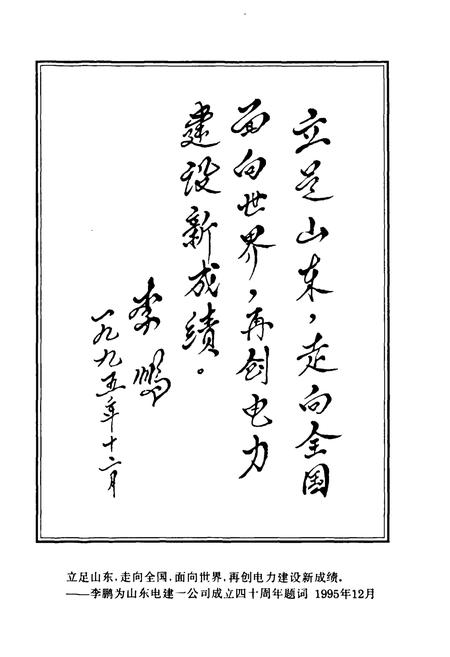 立足山东，走向全国
面向世界，再创电力
建设新成绩。
李鹏
一九九五年十二月
立足山东，走向全国，面向世界，再创电力建设新成绩。
——李鹏为山东电建一公司成立四十周年题词 1995年12月